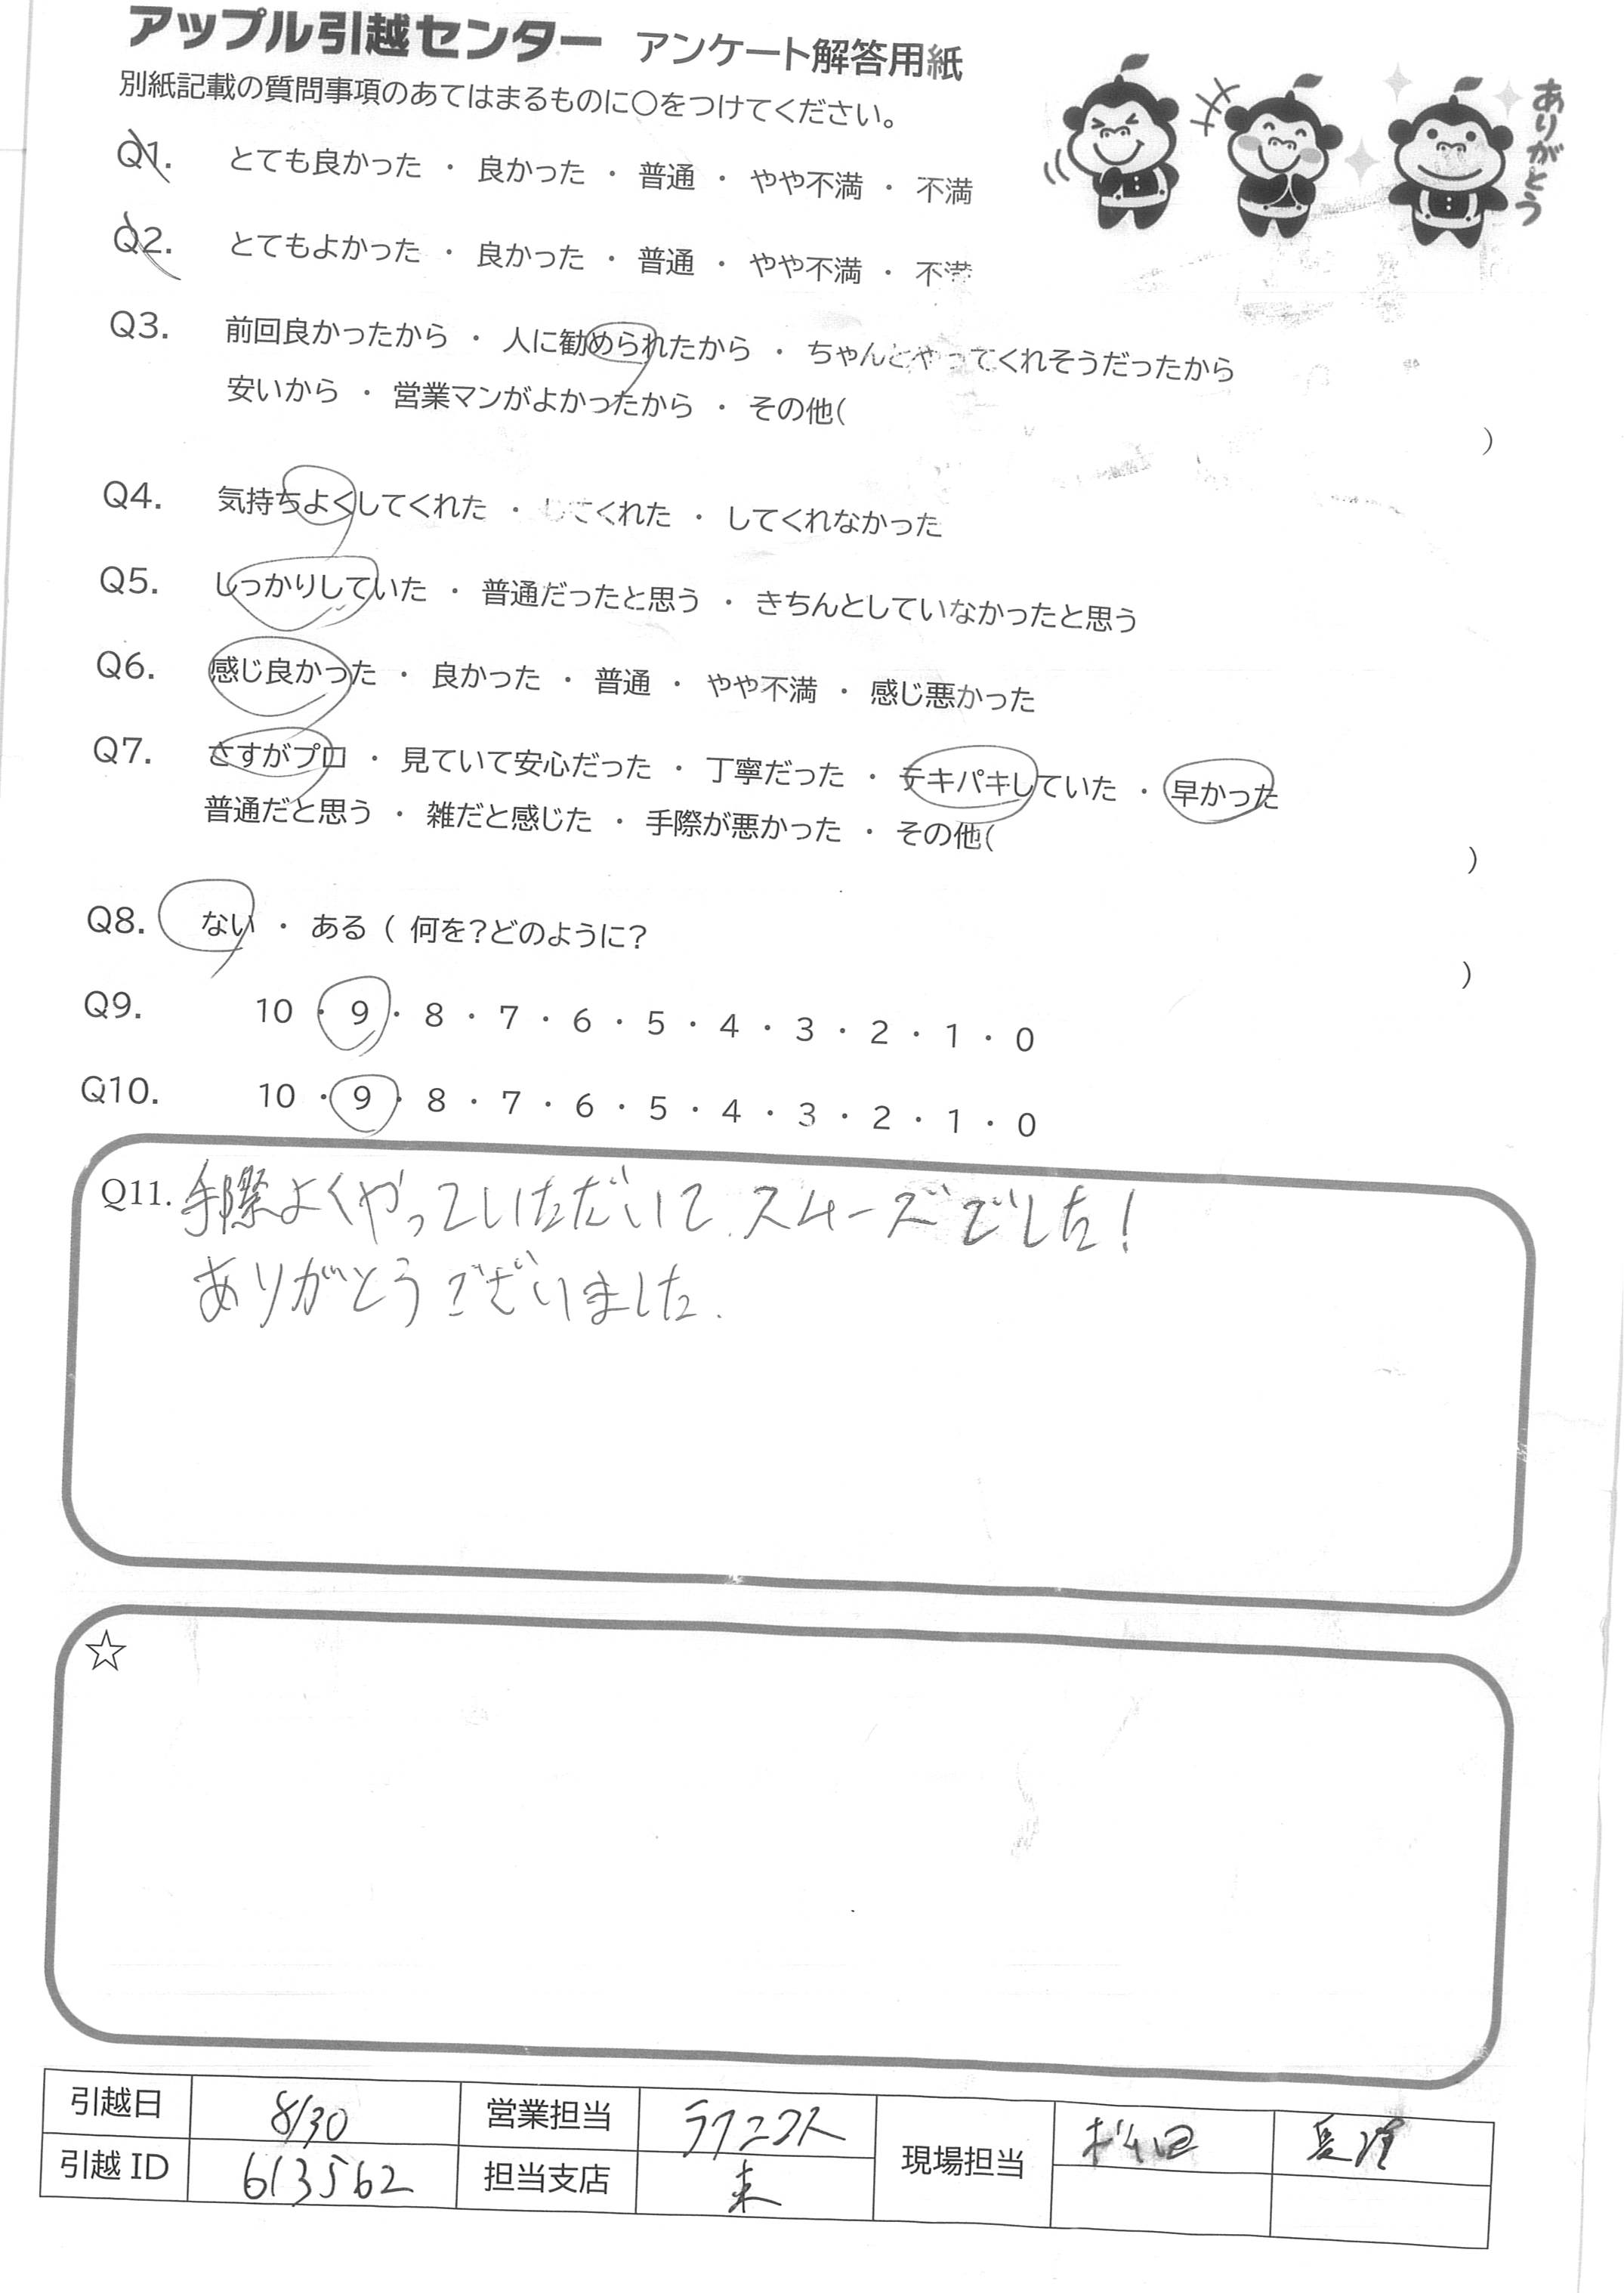 アップル引越センター アンケート解答用紙
別紙記載の質問事項のあてはまるものに○をつけてください。
ありがとう
Q1. とても良かった ・ 良かった ・ 普通 ・ やや不満 ・ 不満
Q2. とてもよかった ・ 良かった ・ 普通 ・ やや不満 ・ 不満
Q3. 前回良かったから ・ 人に勧められたから ・ ちゃんとやってくれそうだったから
安いから ・ 営業マンがよかったから ・ その他( )
Q4. 気持ちよくしてくれた ・ してくれた ・ してくれなかった
Q5. しっかりしていた ・ 普通だったと思う ・ きちんとしていなかったと思う
Q6. 感じ良かった ・ 良かった ・ 普通 ・ やや不満 ・ 感じ悪かった
Q7. さすがプロ ・ 見ていて安心だった ・ 丁寧だった ・ テキパキしていた ・ 早かった
普通だと思う ・ 雑だと感じた ・ 手際が悪かった ・ その他( )
Q8. ない ・ ある ( 何を?どのように? )
Q9. 10 ・ 9 ・ 8 ・ 7 ・ 6 ・ 5 ・ 4 ・ 3 ・ 2 ・ 1 ・ 0
Q10. 10 ・ 9 ・ 8 ・ 7 ・ 6 ・ 5 ・ 4 ・ 3 ・ 2 ・ 1 ・ 0
Q11. 手際よくやっていただいて、スムーズでした!
ありがとうございました.
☆
引越日 8/30 営業担当 現場担当
引越 ID 613562 担当支店